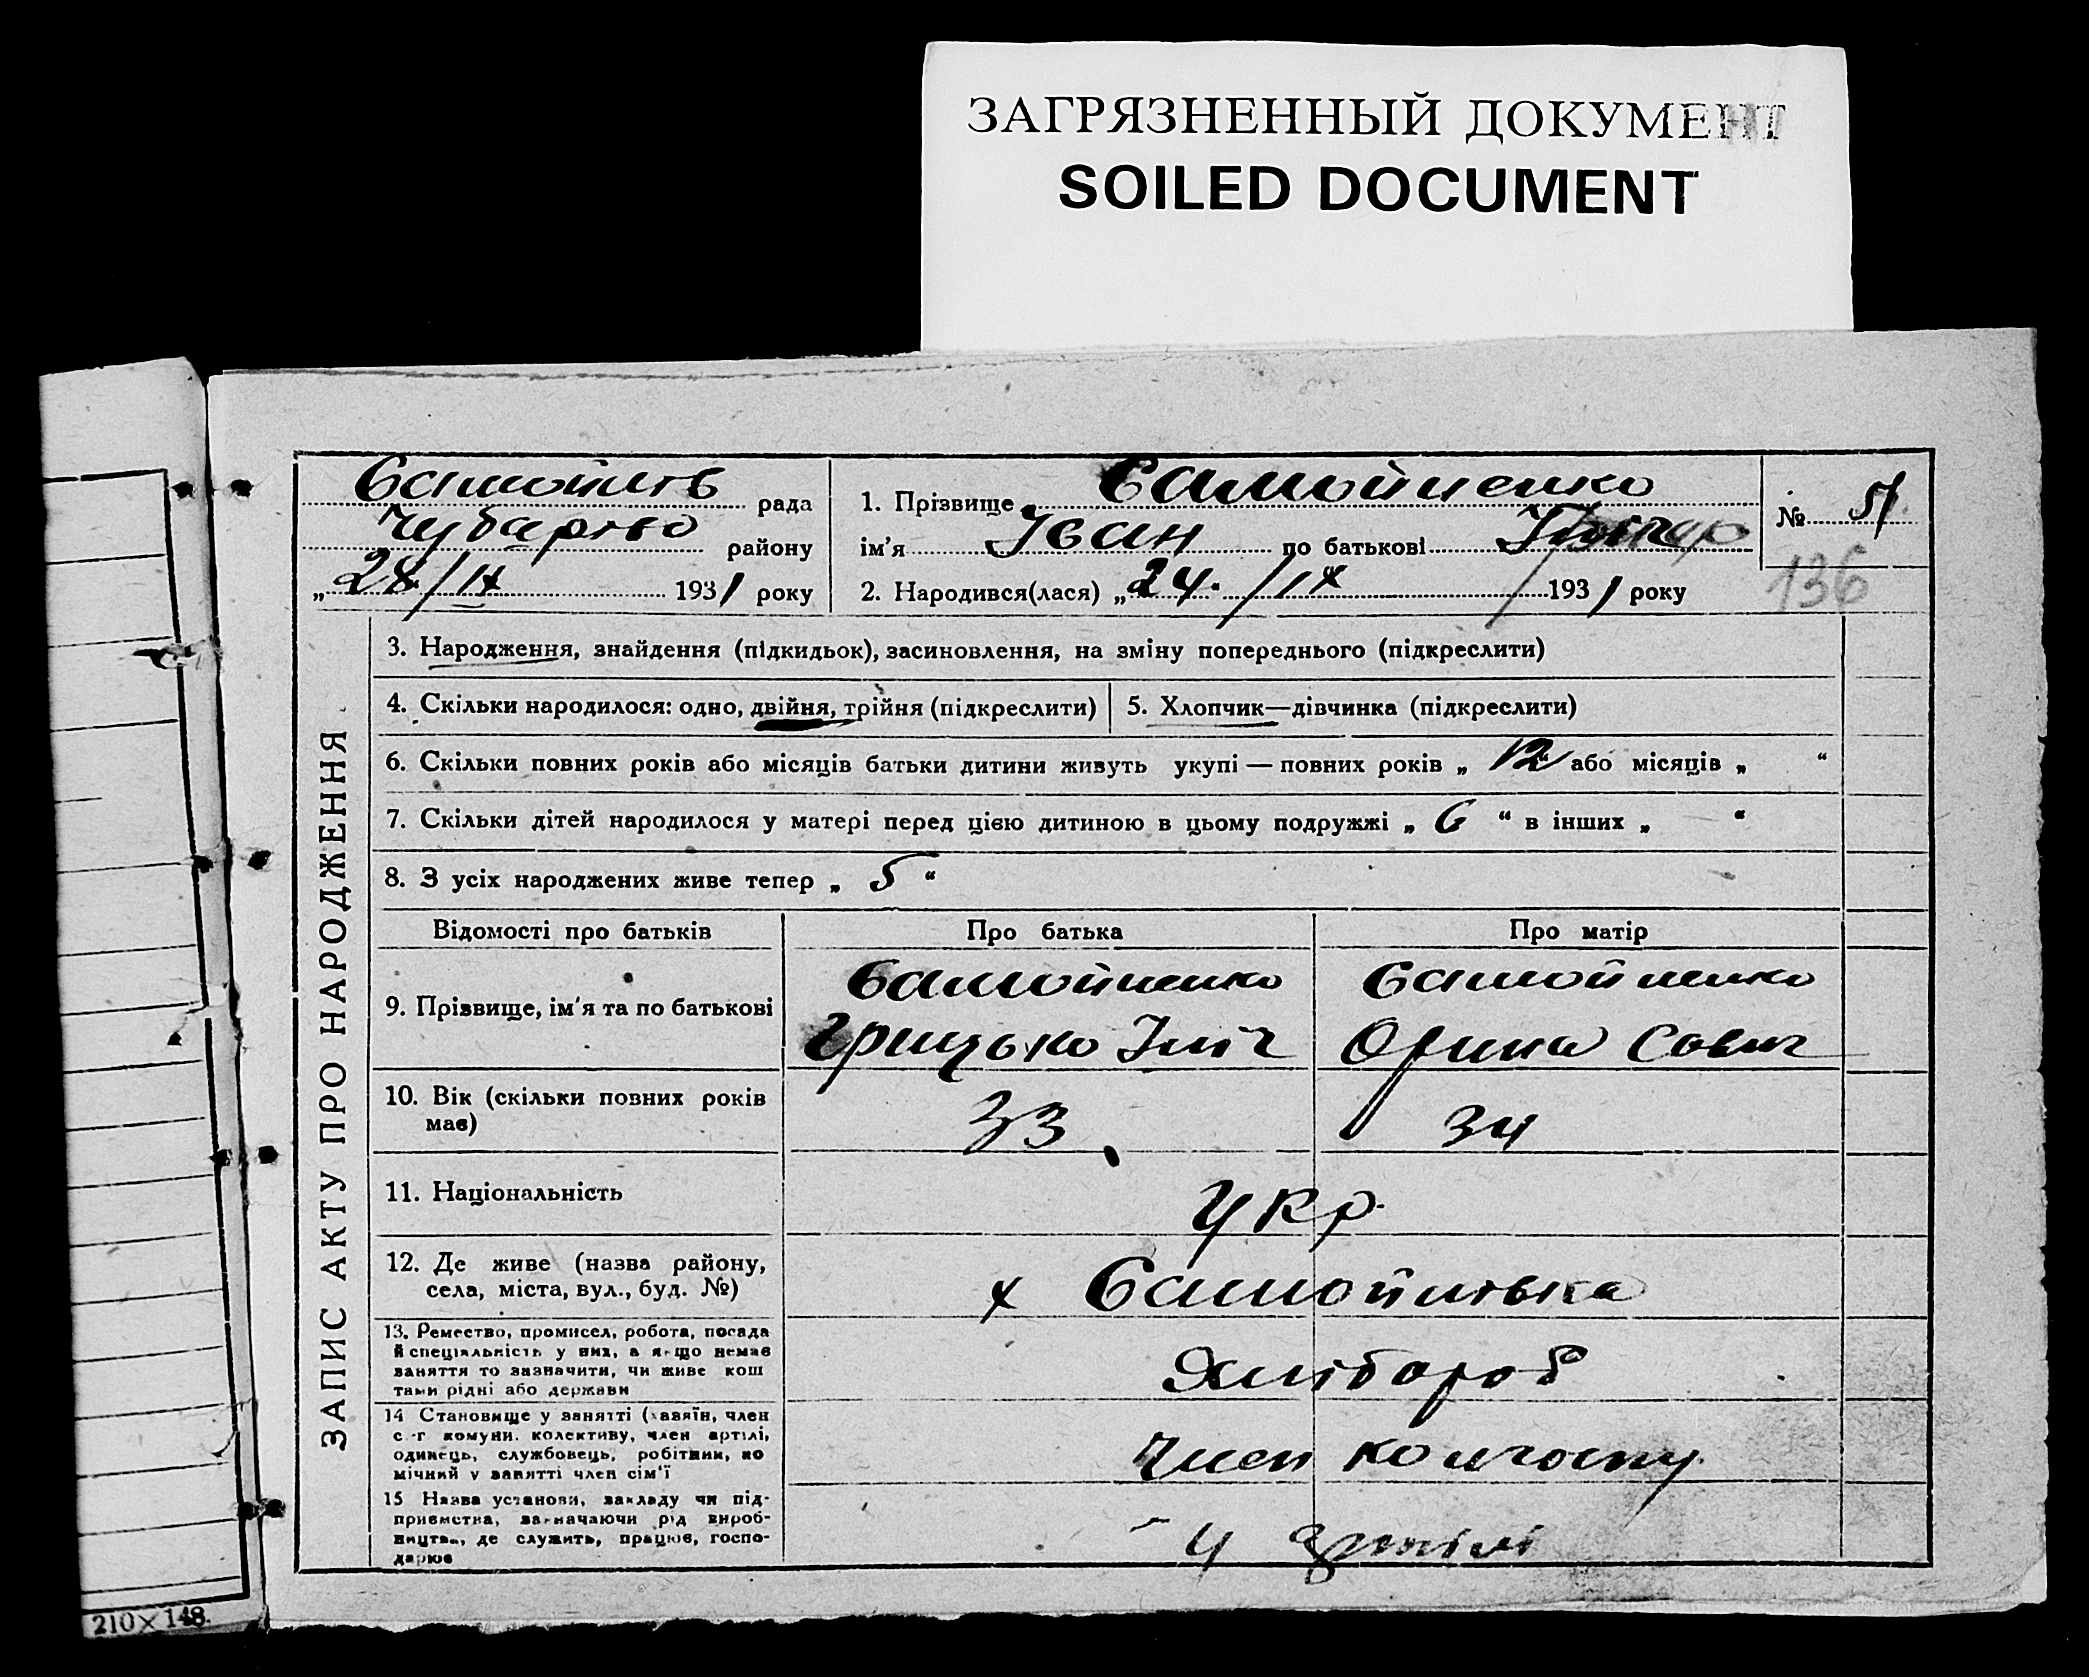 ЗАГРЯЗНЕННЫЙ ДОКУМЕНТ
SOILED DOCUMENT
ЗАПИС АКТУ ПРО НАРОДЖЕННЯ
Самойлів рада
району
„28/IX 1931 року
1. Прізвище Самойленко
ім'я Іван по батькові
2. Народився(лася) „24. /IX 1931 року
№ 51
136
3. Народження, знайдення (підкидьок), засиновлення, на зміну попереднього (підкреслити)
4. Скільки народилося: одно, двійня, трійня (підкреслити)
5. Хлопчик—дівчинка (підкреслити)
6. Скільки повних років або місяців батьки дитини живуть укупі — повних років „ 12 “ або місяців „ “
7. Скільки дітей народилося у матері перед цією дитиною в цьому подружжі „ 6 “ в інших „ “
8. З усіх народжених живе тепер „ 5 “
Відомості про батьків Про батька Про матір
9. Прізвище, ім'я та по батькові
Самойленко
Грицько Іліч
Самойленко
Орина Савич
10. Вік (скільки повних років
має)
33 34
11. Національність Укр.
12. Де живе (назва району,
села, міста, вул., буд. №)
х Самойлівка
13. Ремество, промисел, робота, посада
й спеціяльність у них, а якщо немає
заняття то зазначити, чи живе кош
тами рідні або держави
Хлібороб
14 Становище у занятті (хазяїн, член
с.-г комуни. колективу, член артілі,
одинець, службовець, робітник, по
мічний у занятті член сім'ї
Член колгоспу
15 Назва установи, закладу чи під-
приємства, зазначаючи рід вироб-
ництва, де служить, працює, госпо-
дарює
У артілі
210×148.